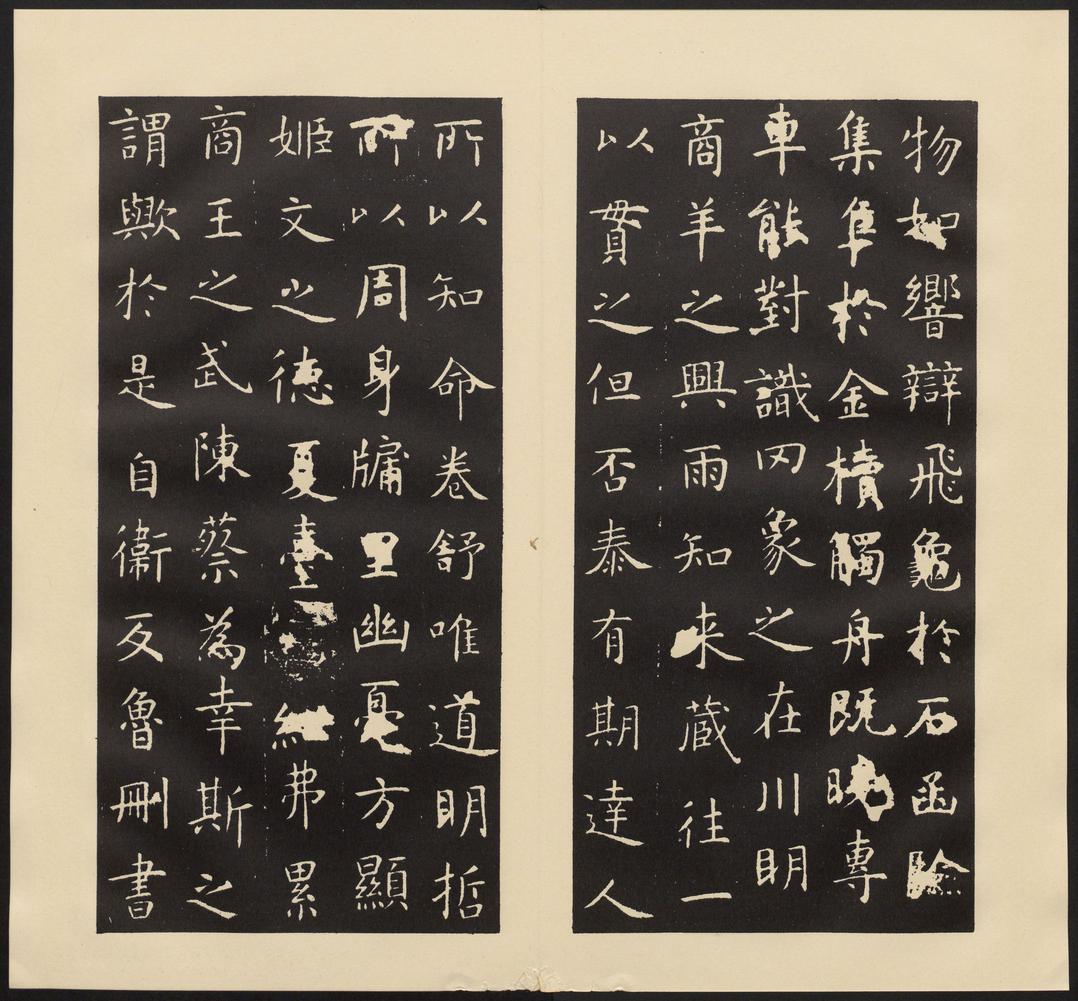 物如響辯飛龜於石函驗
集隼於金櫝觸舟既曉專
車能對識罔象之在川明
商羊之興雨知来藏往一
以貫之但否泰有期達人
所以知命卷舒唯道明哲
所以周身牖里幽憂方顯
姬文之德夏臺紲弗累
商王之武陳蔡為幸斯之
謂歟於是自衛反魯刪書